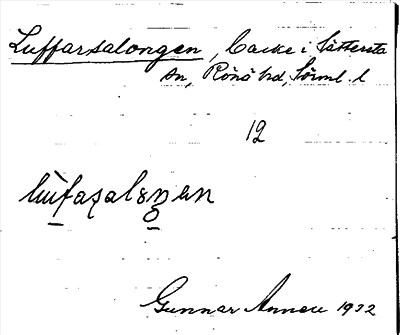 Luffarsalongen, backe i Sättersta
sn, Rönö hd, Sörml. l
12
Gunnar Annell 1932